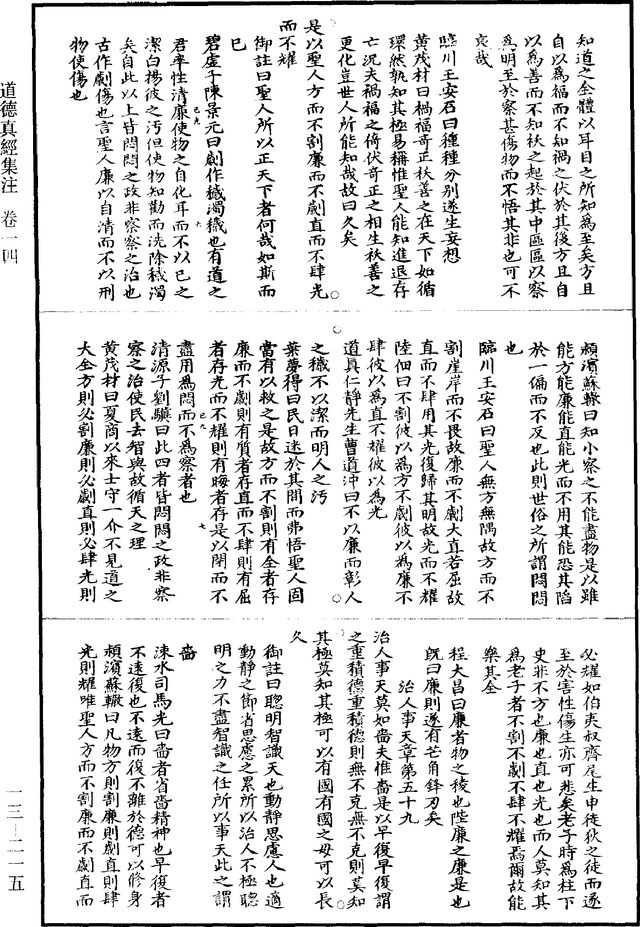 道德真經集注 卷一四
一三—二一五
知道之全體以耳目之所知為至矣方且
自以為福而不知禍之伏於其後方且自
以為善而不知祅之起於其中區區以察
為明至於察甚傷物而不悟其非也可不
哀哉
臨川王安石曰種種分別遂生妄想
黃茂材曰禍福奇正祅善之在天下如循
環然孰知其極易稱惟聖人能知進退存
亡況夫禍福之倚伏奇正之相生祅善之
更化豈世人所能知哉故曰久矣
是以聖人方而不割廉而不劌直而不肆光
而不耀
御註曰聖人所以正天下者何哉如斯而
已
碧虛子陳景元曰劌作穢濁穢也有道之
君率性清廉使物之自化耳而不以已之
潔白揚彼之汚但使物知勸而洗除穢濁
矣自此以上皆悶悶之政非察察之治也
古作劌傷也言聖人廉以自清而不以刑
物使傷也
潁濱蘇轍曰知小察之不能盡物是以雖
能方能廉能直能光而不用其能恐其陷
於一偏而不反也此則世俗之所謂悶悶
也
臨川王安石曰聖人無方無隅故方而不
割崖岸而不畏故廉而不劌大直若屈故
直而不肆用其光復歸其明故光而不耀
陸佃曰不割彼以為方不劌彼以為廉不
肆彼以為直不耀彼以為光
道真仁靜先生曹道沖曰不以廉而彰人
之穢不以潔而明人之汚
葉夢得曰民日迷於其間而弗悟聖人固
當有以救之是故方而不割則有全者存
廉而不劌則有質者存直而不肆則有屈
者存光而不耀則有晦者存是以閉而不
盡用為悶而不為察者也
清源子劉驥曰此四者皆悶悶之政非察
察之治使民去智與故循天之理
黃茂材曰夏商以來士守一介不見道之
大全方則必割廉則必劌直則必肆光則
必耀如伯夷叔齊尾生申徒狄之徒而遂
至於害性傷生亦可悲矣老子時為柱下
史非不方也廉也直也光也而人莫知其
為老子者不割不劌不肆不耀焉爾故能
樂其全
程大昌曰廉者物之稜也陛廉之廉是也
旣曰廉則遂有芒角鋒刃矣
治人事天章第五十九
治人事天莫如嗇夫惟嗇是以早復早復謂
之重積德重積德則無不克無不克則莫知
其極莫知其極可以有國有國之母可以長
久
御註曰聰明智識天也動靜思慮人也適
動靜之節省思慮之累所以治人不極聰
明之力不盡智識之任所以事天此之謂
嗇
涑水司馬光曰嗇者省嗇精神也早復者
不遠復也不遠而復不離於德可以修身
潁濱蘇轍曰凡物方則割廉則劌直則肆
光則耀唯聖人方而不割廉而不劌直而